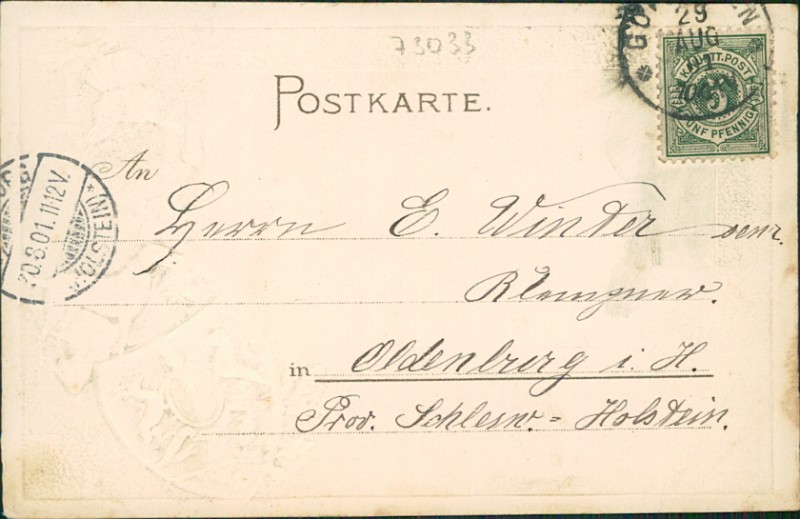 73033
29
AUG
K. WÜRTT. POST
5
FÜNF PFENNIG
POSTKARTE.
An
Herrn E. Winter senr.
Klempner.
in Oldenburg i. H.
Prov. Schlesw.= Holstein.
30.8.01.11-12V.
* (HOLSTEIN)